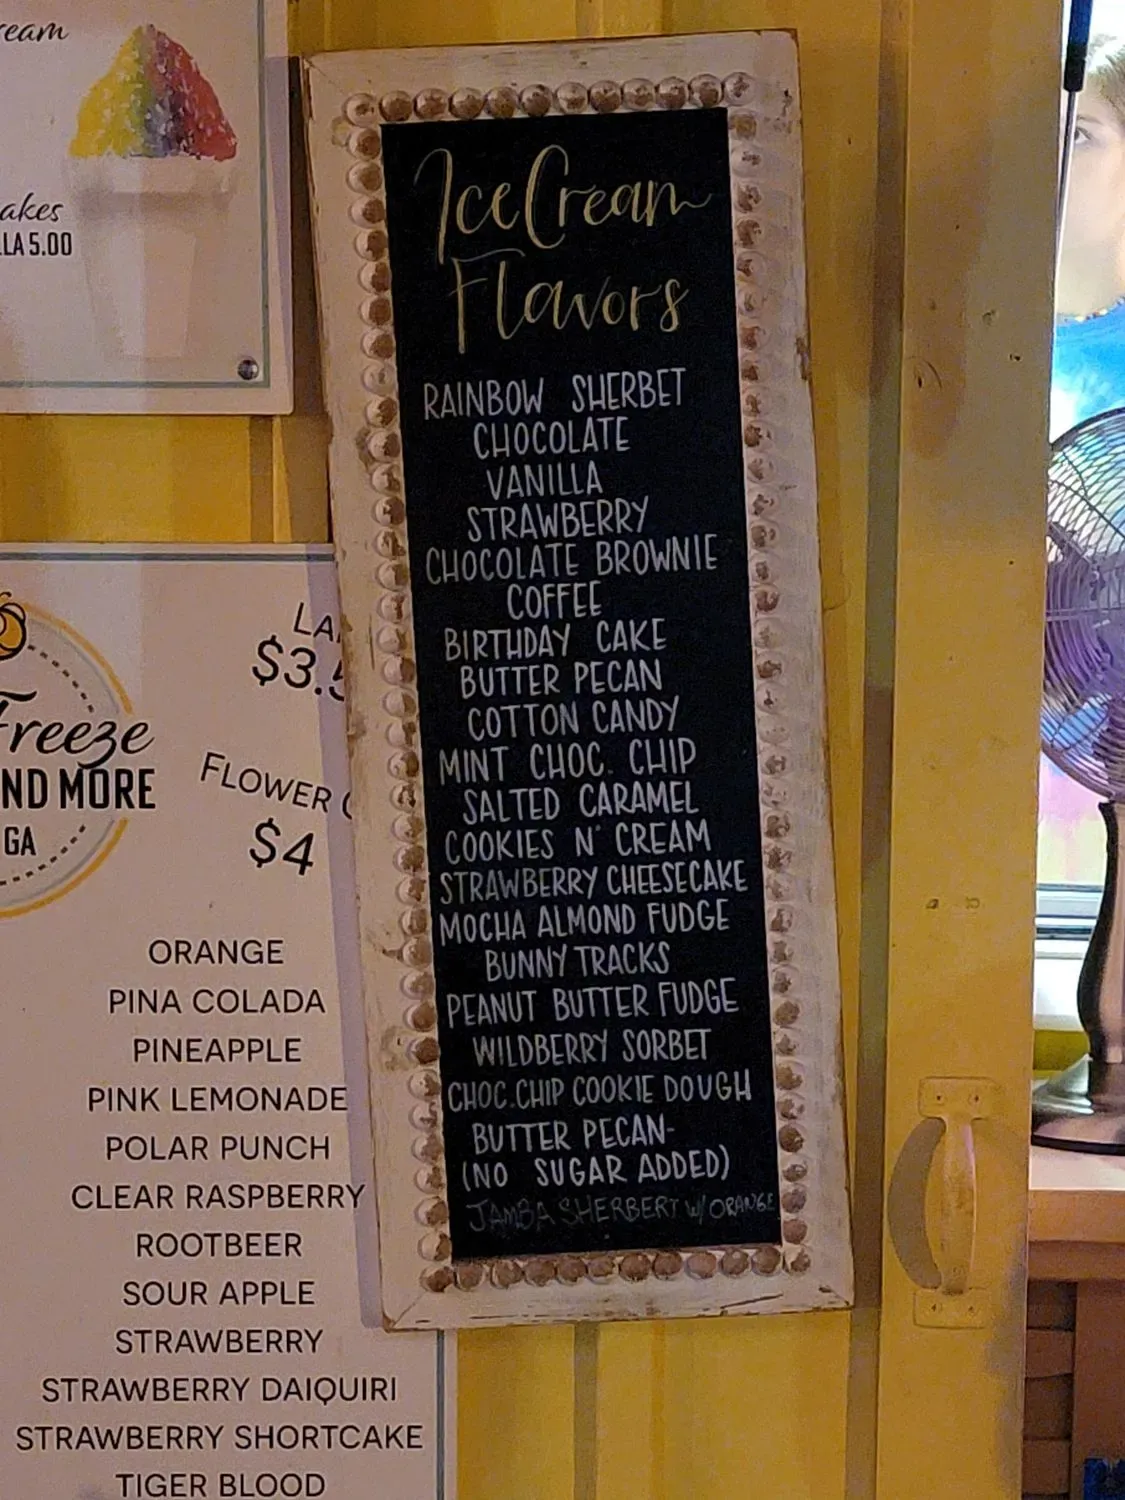 ream
akes
LLA 5.00
Ice Cream
Flavors
RAINBOW SHERBET
CHOCOLATE
VANILLA
STRAWBERRY
CHOCOLATE BROWNIE
COFFEE
BIRTHDAY CAKE
BUTTER PECAN
COTTON CANDY
MINT CHOC. CHIP
SALTED CARAMEL
COOKIES N' CREAM
STRAWBERRY CHEESECAKE
MOCHA ALMOND FUDGE
BUNNY TRACKS
PEANUT BUTTER FUDGE
WILDBERRY SORBET
CHOC.CHIP COOKIE DOUGH
BUTTER PECAN-
(NO SUGAR ADDED)
JAMBA SHERBERT w/ ORANGE
Freeze
ND MORE
GA
LA
$3.5
FLOWER
$4
ORANGE
PINA COLADA
PINEAPPLE
PINK LEMONADE
POLAR PUNCH
CLEAR RASPBERRY
ROOTBEER
SOUR APPLE
STRAWBERRY
STRAWBERRY DAIQUIRI
STRAWBERRY SHORTCAKE
TIGER BLOOD